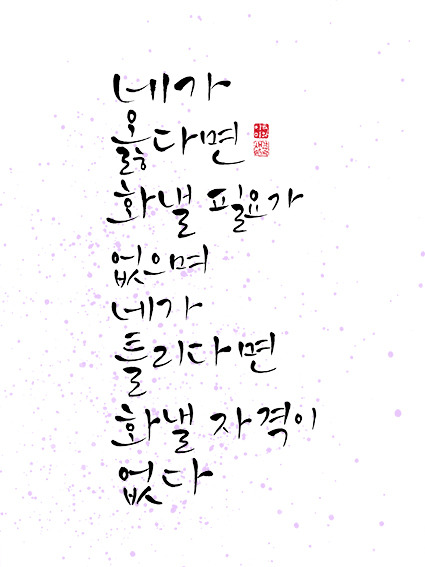 네가
옳다면
화낼 필요가
없으며
네가
틀리다면
화낼 자격이
없다